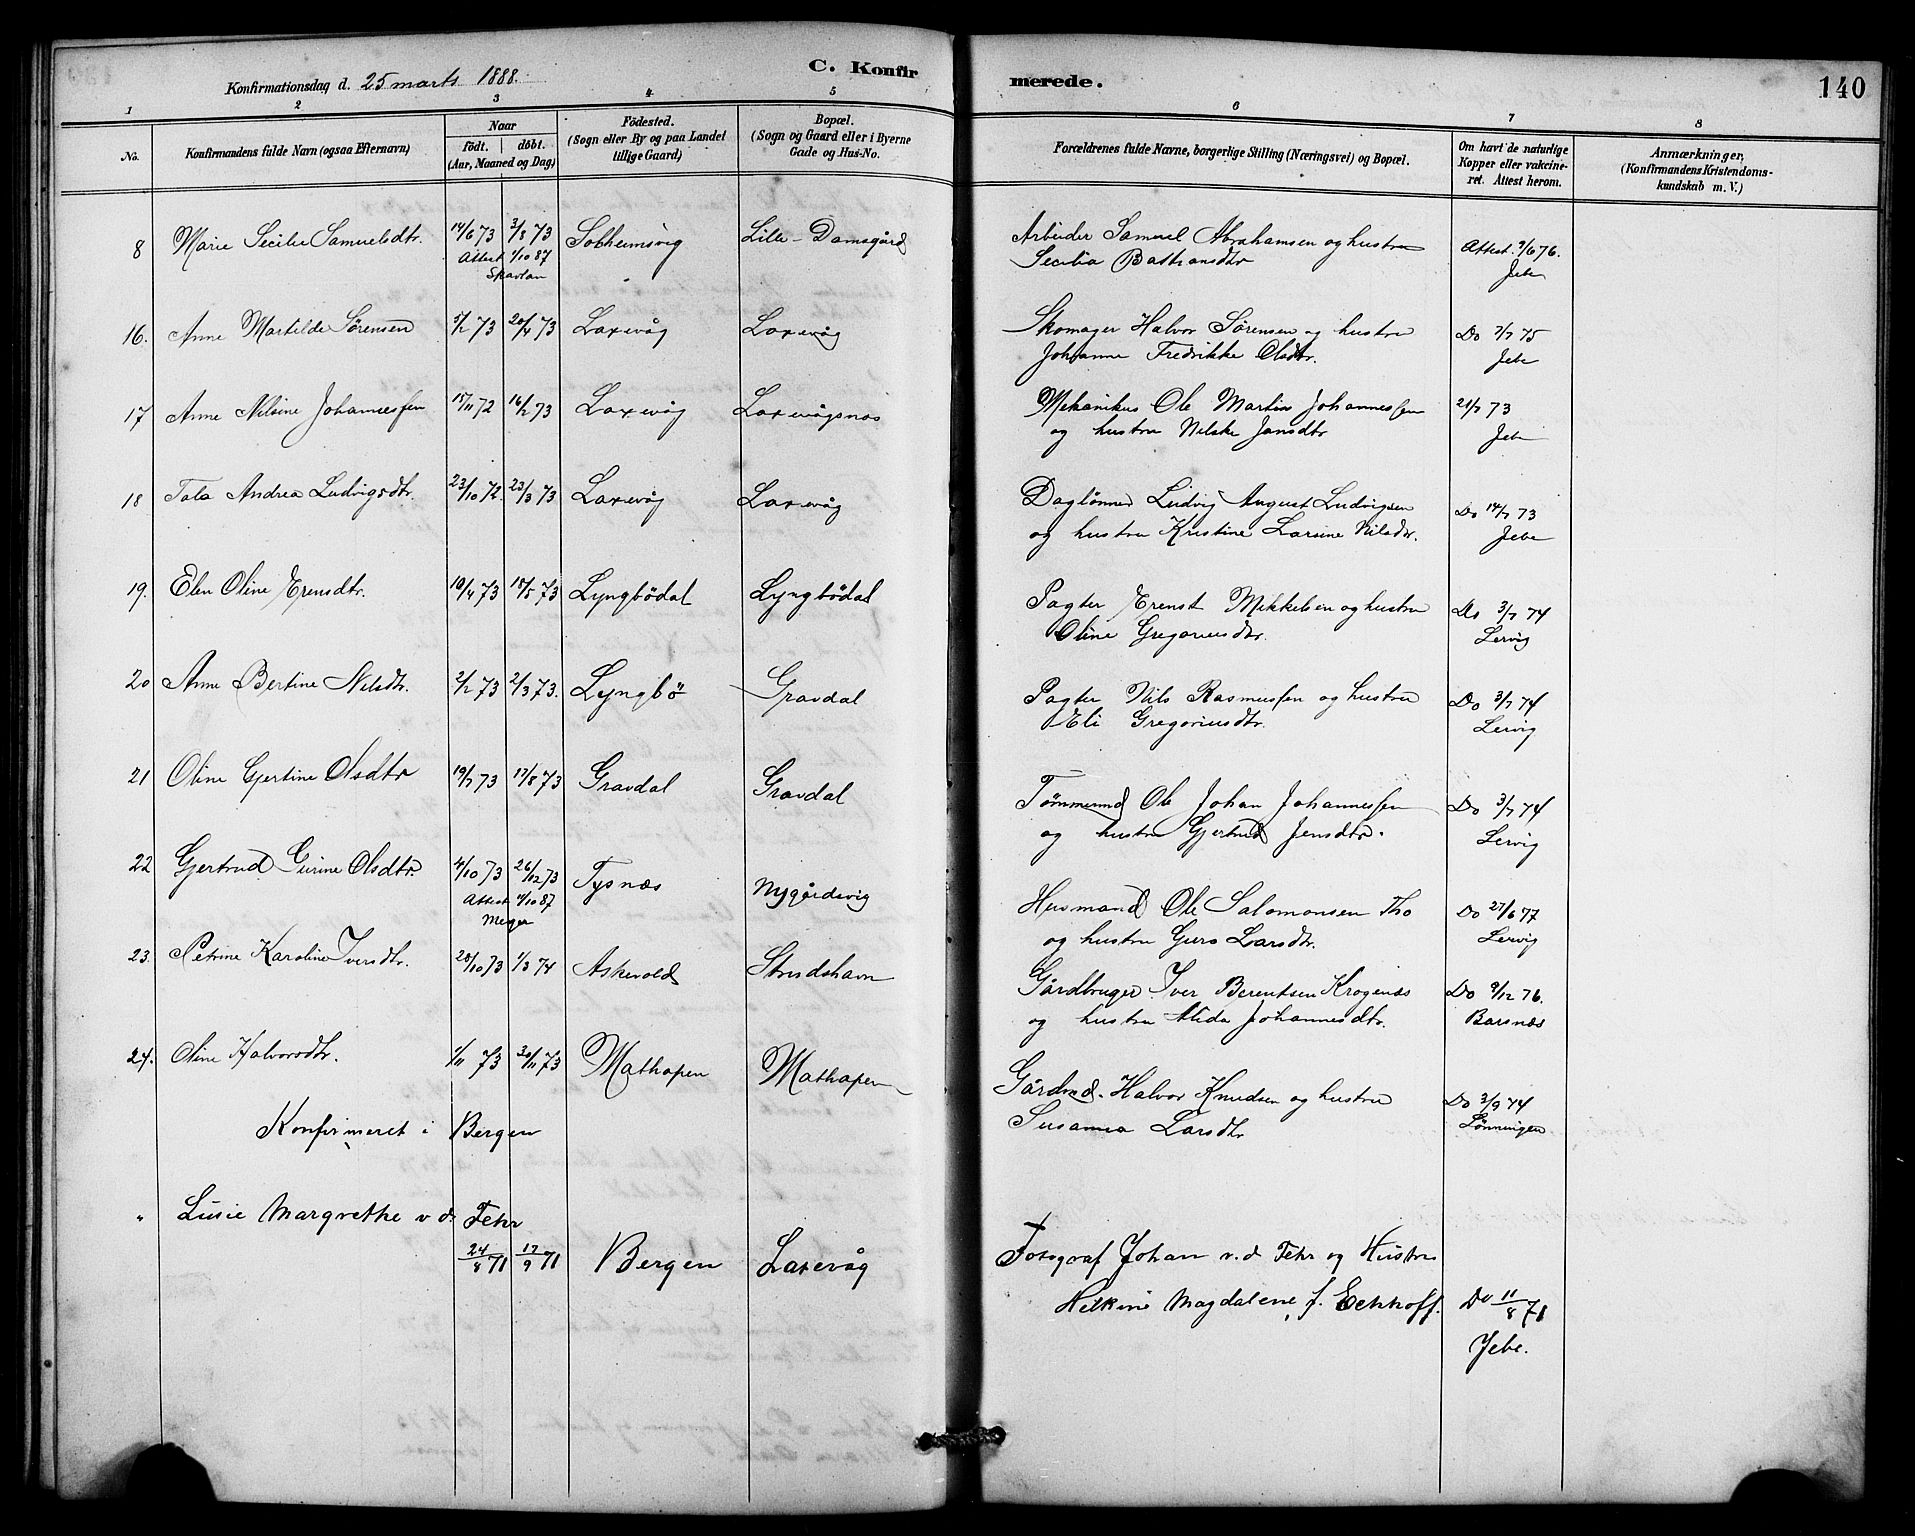 C. Konfirmerede. 140
Konfirmationsdag d. 25 marts 1888.
1 2 3 4 5 6 7 8
No. Konfirmandens fulde Navn (ogsaa Efternavn) Naar födt. döbt. (Aar, Maaned og Dag) Födested. (Sogn eller By og paa Landet tillige Gaard) Bopæl. (Sogn og Gaard eller i Byerne Gade og Hus-No. Forældrenes fulde Navne, borgerlige Stilling (Næringsvei) og Bopæl. Om havt de naturlige Kopper eller vakcineret. Attest herom. Anmærkninger, (Konfirmandens Kristendomskundskab m. V.)
8 Marie Secilie Samuelsdtr. 14/6 73 3/8 73 Solheimsvig Lille-Damsgård Arbeider Samuel Abrahamsen og hustru
Attest 1/10 87 Secilia Attest 9/6 76.
Skavlan Jebe
16. Anne Martilde Sørensen 5/2 73 20/4 73 Laxevåg Laxevåg Skomager Halvor Sørensen og hustru Do 7/7 75
Johanne Fredrikke Olsdtr. Jebe
17 Anne Nilsine Johannessen 15/11 72 16/2 73 Laxevåg Laxevågsnes Mekanikus Ole Martin Johannessen 21/7 73
og hustru Nilske Jansdtr Jebe
18 Tala Andrea Ludvigsdtr. 23/10 72 23/3 73 Laxevåg Laxevåg Daglønner Ludvig August Ludvigsen Do 14/7 73
og hustru Kristine Larsine Nilsdtr. Jebe
19. Elen Oline Erensdtr. 10/4 73 18/5 73 Lyngbödal Lyngbödal Pagter Erenst Mikkelsen og hustru Do 3/7 74
Oline Gregoriusdtr. Lervig
20 Anne Bertine Nilsdtr. 2/2 73 2/3 73. Lyngbö Gravdal Pagter Nils Rasmussen og hustru Do 3/7 74
Eli Gregoriusdtr Lervig
21 Oline Gjertine Olsdtr 19/7 73 17/8 73 Gravdal Gravdal Tømmermd Ole Johan Johannessen Do 3/7 74
og hustru Gjertrud Jensdtr. Lervig
22 Gjertrud Gurine Olsdtr. 4/10 73 26/12 73 Tysnæs Nygårdsvig Husmand Ole Salomonsen Tho Do 27/6 77
Attest 4/10 87 og hustru Guro Larsdtr. Lervig
Meyer
23. Petrine Karoline Iversdtr. 28/10 73 1/3 74 Askevold Strudshavn Gårdbruger Iver Berentsen Krogenæs Do 9/12 76.
og hustru Alida Johannesdtr. Barsnæs
24. Oline Halvorsdtr. 1/11 73 30/11 73 Mathopen Mathopen Gårdmd. Halvor Knudsen og hustru Do 3/9 74
Susanna Larsdtr Lönningen
Konfirmeret i Bergen
" Lusie Margrethe v d. Fehr
24/8 71 17/9 71 Bergen Laxevåg Fotograf Johan v. d Fehr og Hustru
Magdalene f. Eckhoff. Do 11/8 71
Jebe.